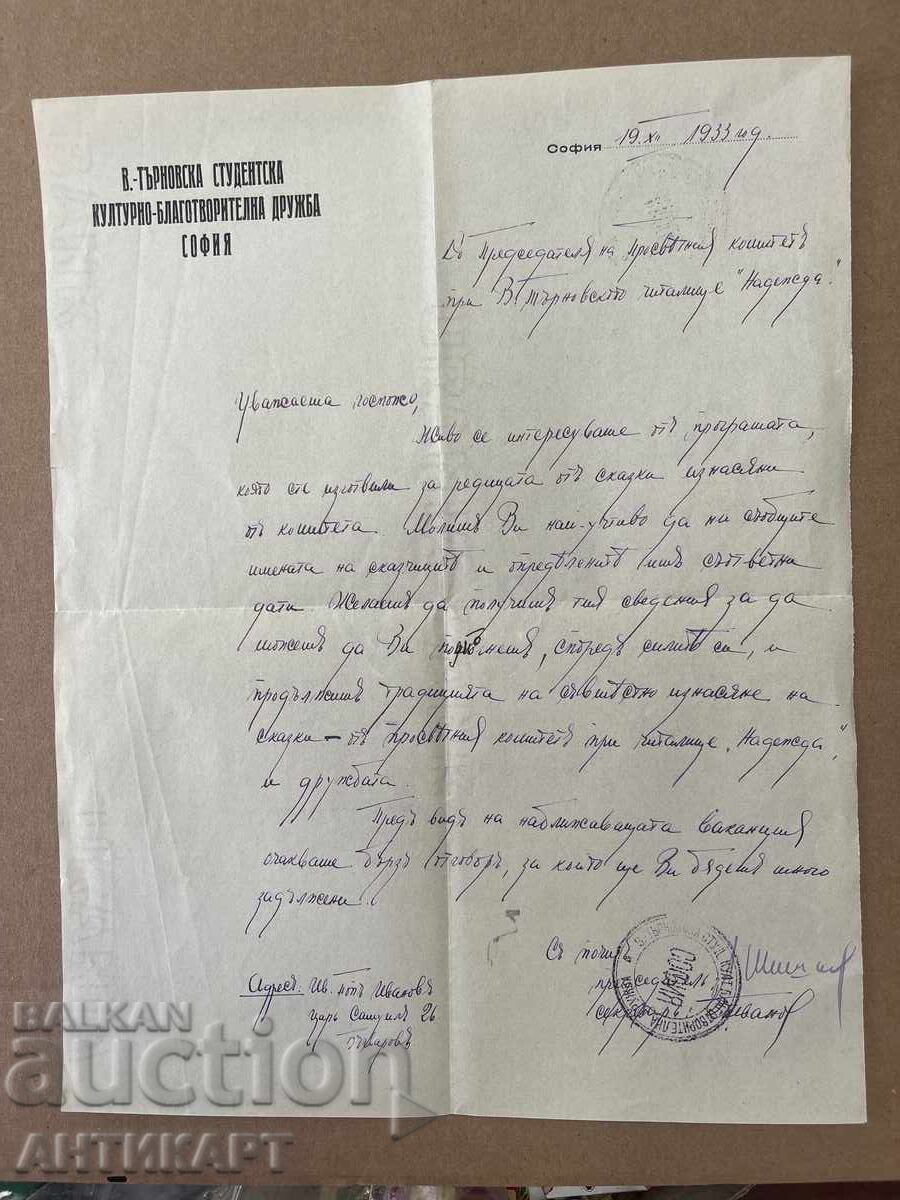 В.-ТЪРНОВСКА СТУДЕНТСКА
КУЛТУРНО-БЛАГОТВОРИТЕЛНА ДРУЖБА
СОФИЯ
София 19.XII 1933 год.
До Председателя на Просвѣтния комитетъ
при В. Търновското читалище "Надежда".
Уважаема госпожо,
Живо се интересуваме отъ програмата,
която сте изготвили за редицата отъ сказки изнасяни
отъ комитета. Молимъ Ви най-учтиво да ни съобщите
имената на сказчиците и опредѣлените имъ съответни
дати. Желаемъ да получимъ тия сведения за да
можемъ да Ви помогнемъ, споредъ силите си, и
продължимъ традицията на съвмѣстно изнасяне на
сказки – отъ Просвѣтния комитетъ при читалище „Надежда"
и дружбата.
Предъ видъ на наближаващата ваканция
очакваме бързъ отговоръ, за който ще Ви бѫдемъ много
задължени.
Съ почит
председатель:
секретарь: Иванов
Адресъ: Ив. попъ Ивановъ
царь Самуил 26
СОФИЯ
BALKAN
auction
АНТИКАРТ